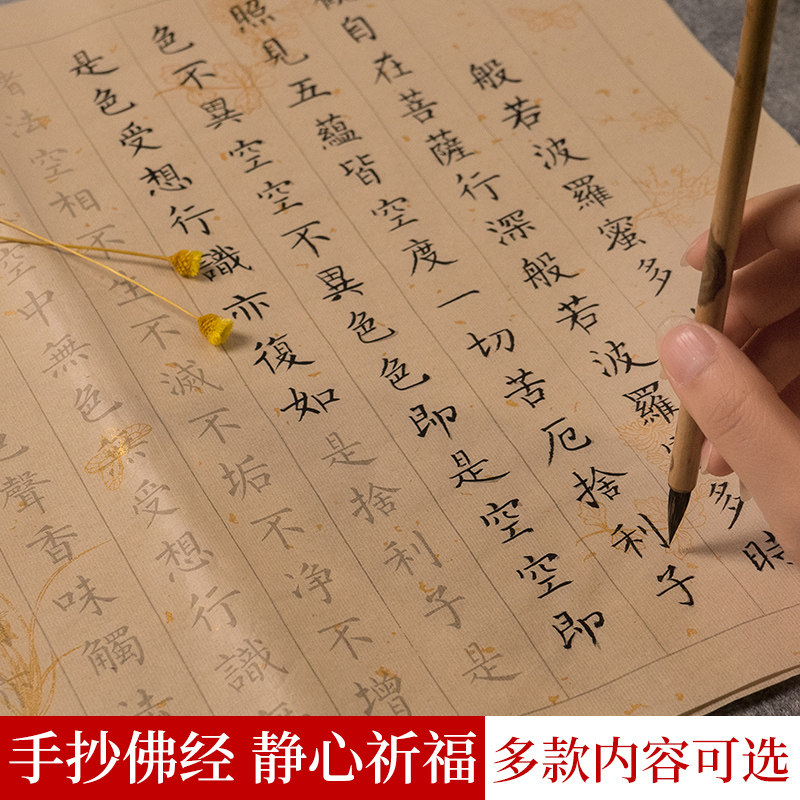 般若波羅蜜多
自在菩薩行深般若波羅蜜多時
照見五蘊皆空度一切苦厄捨利子
色不異空空不異色色即是空空即
是色受想行識亦復如是捨利子是
諸法空相不生不滅不垢不净不增
空中無色無受想行識
聲香味觸法
手抄佛经 静心祈福 多款内容可选